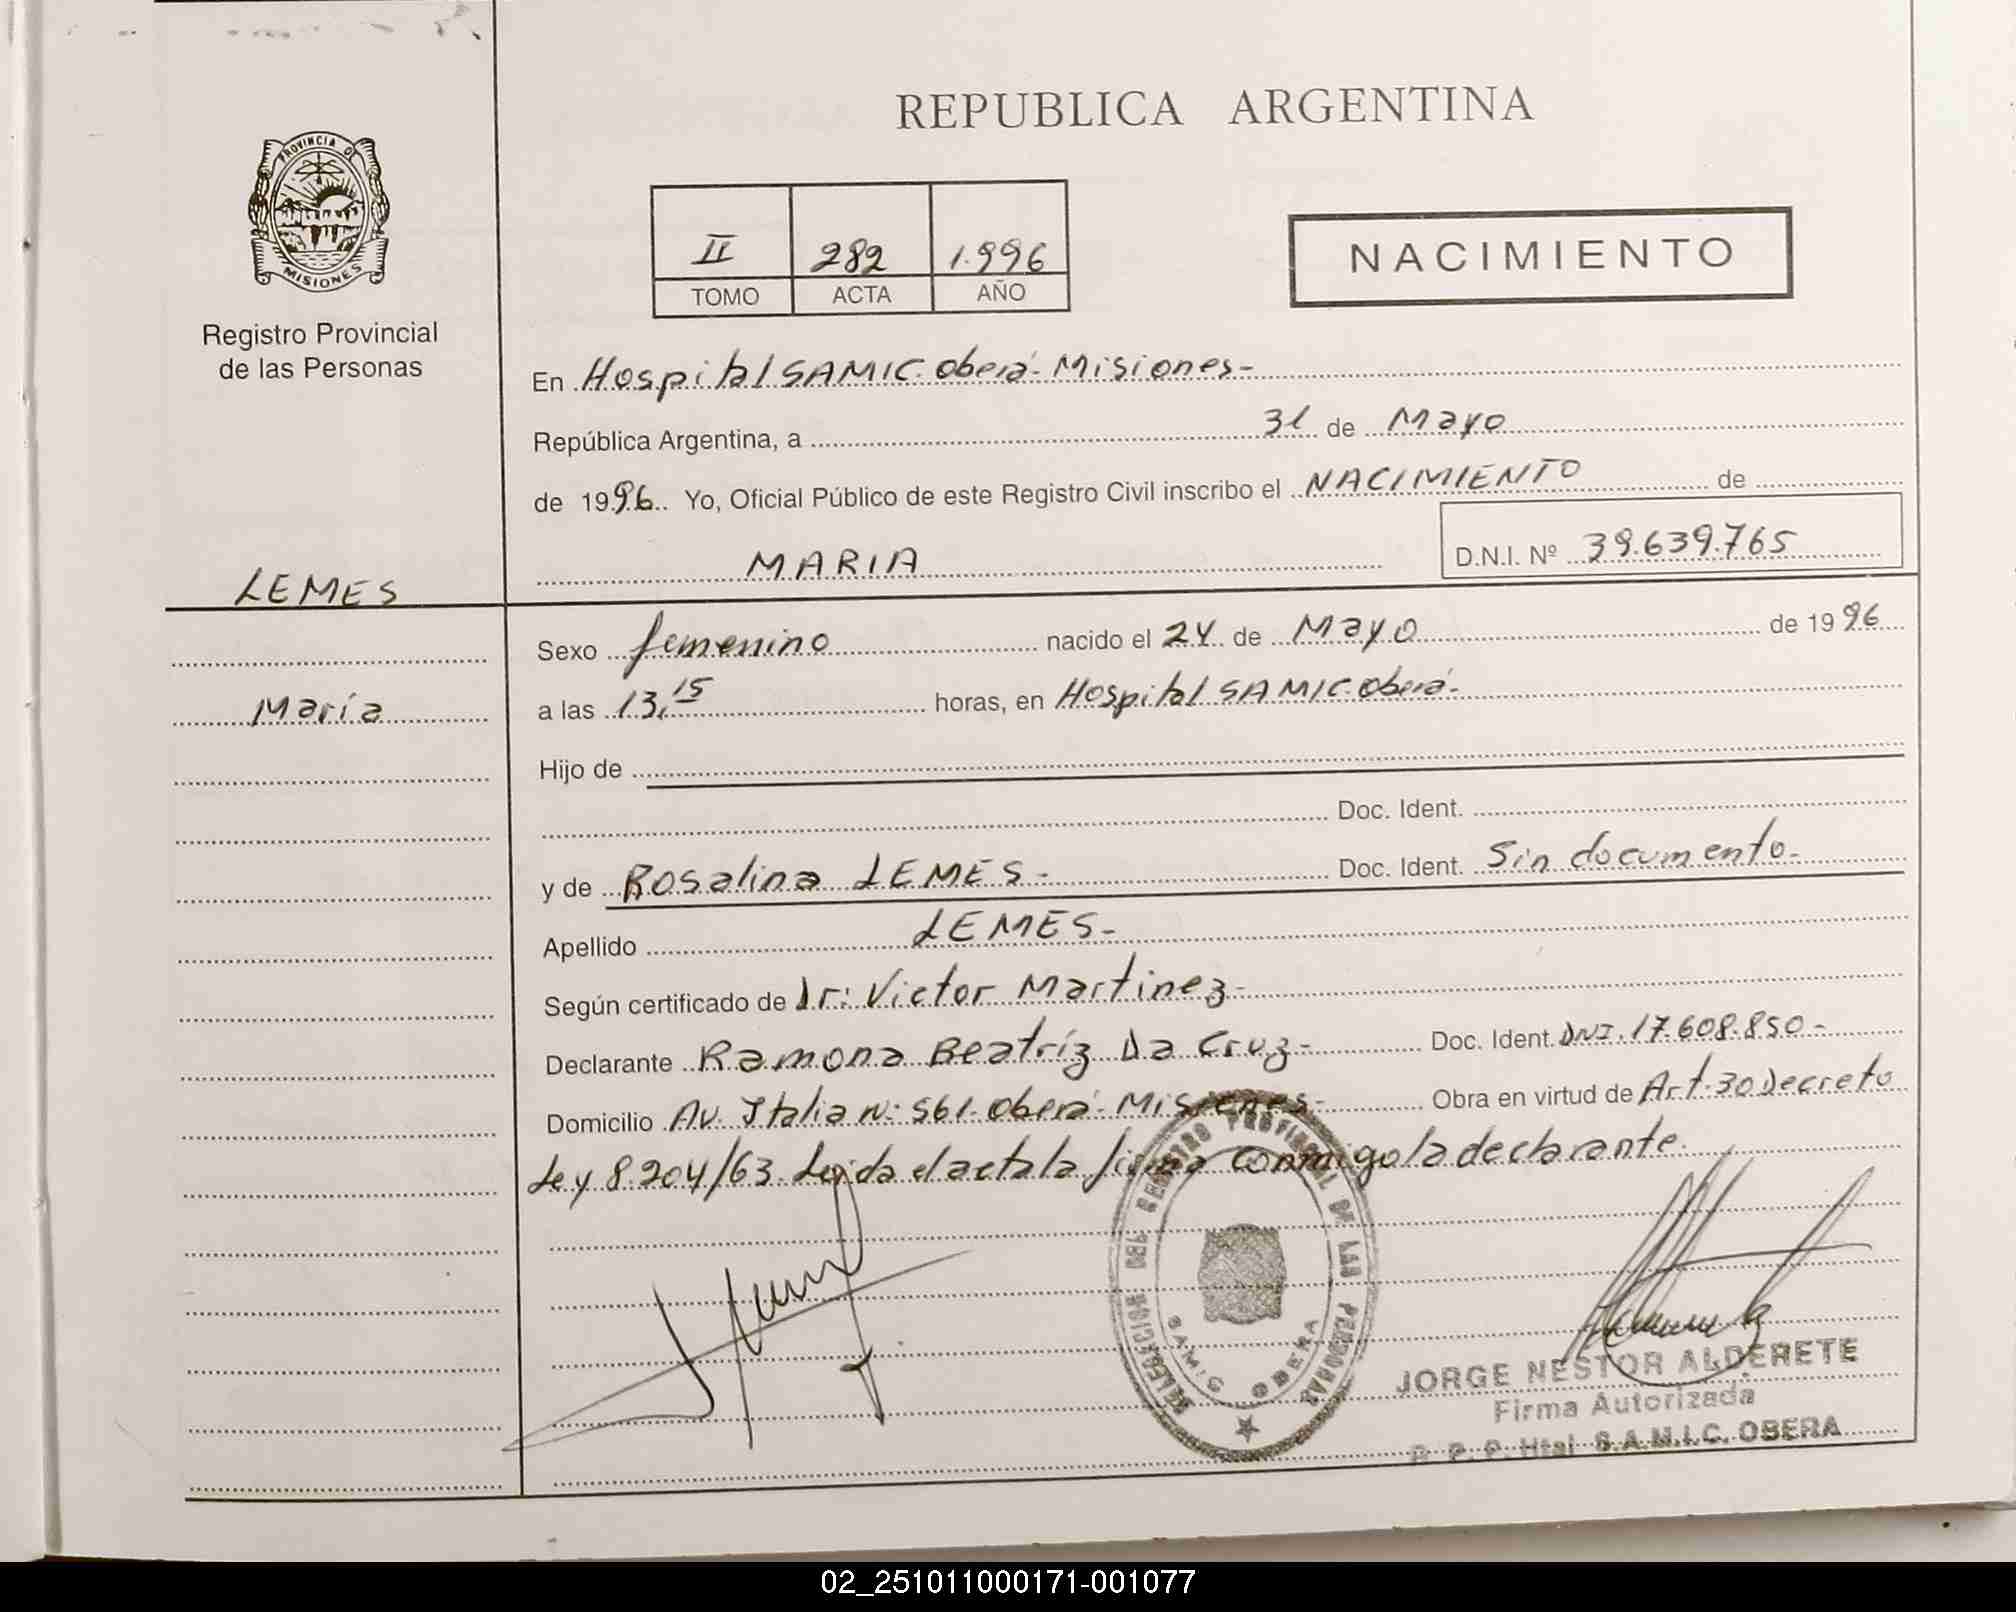 REPUBLICA ARGENTINA
PROVINCIA DE
MISIONES
Registro Provincial
de las Personas
II 282 1.996
TOMO ACTA AÑO
NACIMIENTO
En Hospital SAMIC. Oberá- Misiones-
República Argentina, a 31 de Mayo
de 1996 Yo, Oficial Público de este Registro Civil inscribo el NACIMIENTO de
MARIA D.N.I. Nº 39.639.765
LEMES
María
Sexo femenino nacido el 24 de Mayo de 1996
a las 13,15 horas, en Hospital SAMIC. Oberá-
Hijo de
Doc. Ident.
y de Rosalina LEMES- Doc. Ident. Sin documento-
Apellido LEMES-
Según certificado de Dr: Victor Martinez-
Declarante Ramona Beatríz Da Cruz- Doc. Ident. DNI. 17.608.850-
Domicilio Av. Italia N: 561. Oberá- Misiones- Obra en virtud de Art. 30 Decreto
Ley 8.204/63. Leída el acta la firma conmigo la declarante.
REGISTRO PROVINCIAL DE LAS PERSONAS
DELEGACION
SAMIC OBERA
JORGE NESTOR ALDERETE
Firma Autorizada
R. P. P. Htal S.A.M.I.C. OBERA
02_251011000171-001077